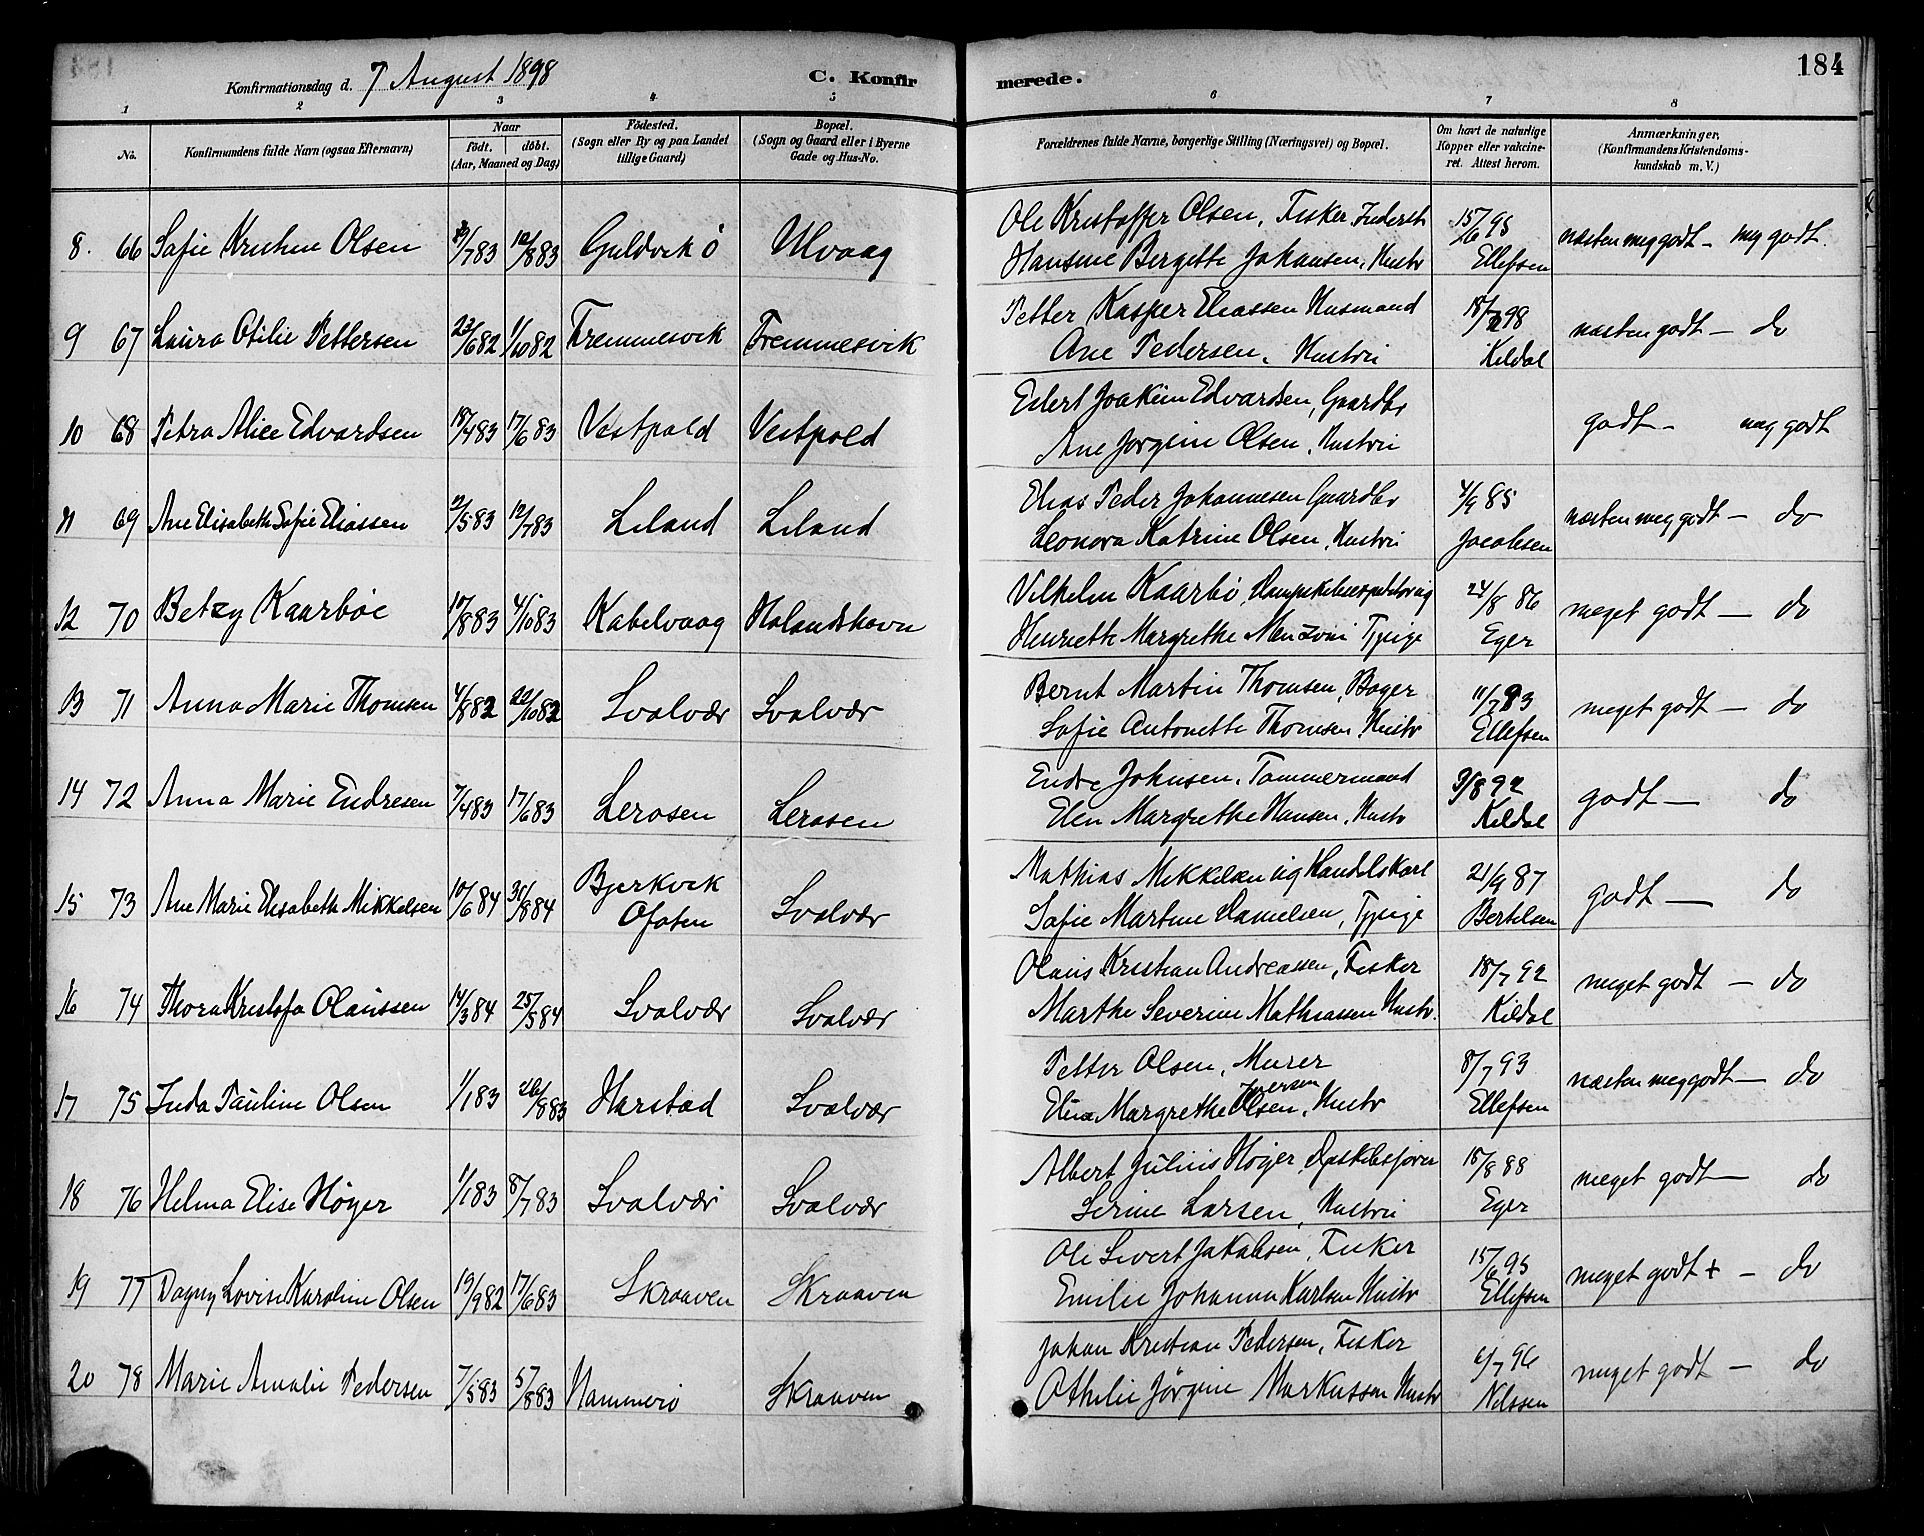 184
Konfirmationsdag d. 7 August 1898 C. Konfirmerede.
1 2 3 4 5 6 7 8
No. Konfirmandens fulde Navn (ogsaa Efternavn) Naar født. døbt. (Aar, Maaned og Dag) Fødested. (Sogn eller By og paa Landet tillige Gaard) Bopæl. (Sogn og Gaard eller i Byerne Gade og Hus-No. Forældrenes fulde Navne, borgerlige Stilling (Næringsvei) og Bopæl. Om havt de naturlige Kopper eller vakcineret. Attest herom. Anmærkninger, (Konfirmandens Kristendomskundskab m. V.)
8. 66 Sofie Kristine Olsen /7 83 12/8 83 Guldvik ö Ulvaag Ole Kristoffer Olsen, Fisker 15/6 95 næsten meg godt - meg godt.
Hansine Bergette Johansen, Hustr Ellefsen
9 67 Laura Otilie Pettersen 23/6 82 1/10 82 Fremmesvik Fremmesvik Petter Kasper Eliassen Husmand 18/7 98 næsten godt - do
Ane Pedersen, Hustru Kildal
10 68 Petra Alice Edvardsen 18/4 83 17/6 83 Vestpold Vestpold Edert Joakim Edvardsen, Gaardbr godt - meg godt
Ane Jørgine Olsen, Hustru
11 69 Ane Elisabeth Sofie Eliassen 2/5 83 12/7 83 Liland Liland Elias Peder Johannesen Gaardbr 4/9 85 næsten meg godt - do
Leonora Katrine Olsen, Hustru Jacobsen
12 70 Betzy Kaarbøe 10/8 83 4/10 83 Kabelvaag Holandshavn Vilhelm Kaarbö, 24/8 86 meget godt - do
Henriette Margrethe Menzoni Tjpige Eger
13 71 Anna Marie Thomsen 4/8 82 22/10 82 Svolvær Svolvær Bernt Martin Thomsen, Bager 11/7 83 meget godt - do
Sofie Antonette Thomsen, Hustr Ellefsen
14 72 Anna Marie Endresen 7/4 83 17/6 83 Lerosen Lerosen Endre Johnsen, Tømmermand 9/8 92 godt - do
Elen Margrethe Hansen, Hustr Kildal
15 73 Ane Marie Elisabeth Mikkelsen 10/6 84 31/8 84 Bjerkvik Ofoten Svolvær Mathias Mikkelsen ug Handelskarl 21/9 87 godt - do
Sofie Martine Danielsen, Tjpige Bertelsen
16 74 Thora Kristofa Olaussen 14/3 84 25/5 84 Svolvær Svolvær Olaus Kristian Andreassen, Fisker 18/7 92 meget godt - do
Marthe Severine Mathiassen Hustr. Kildal
17 75 Inda Pauline Olsen 1/1 83 26/8 83 Harstad Svolvær Petter Olsen, Murer 8/7 93 næsten meg godt - do
Elina Margrethe Olsen, Hustr Ellefsen
18 76 Helma Elise Höyer 1/1 83 8/7 83 Svolvær Svolvær Albert Julius Höyer, Dpskibsfører 18/8 88 meget godt - do
Serine Larsen, Hustru Eger
19 77 Dagny Lovise Karoline Olsen 19/9 82 17/6 83 Skraaven Skraaven Ole Sivert Jakobsen, Fisker 15/6 95 meget godt + - do
Emilie Johanna Karlsen Hustr Ellefsen
20 78 Marie Amalie Pedersen 7/5 83 5/8 83 Hammerö Skraaven Johan Kristian Pedersen, Fisker 6/7 96 meget godt - do
Othilie Jörgine Markussen Hustr Nilssen